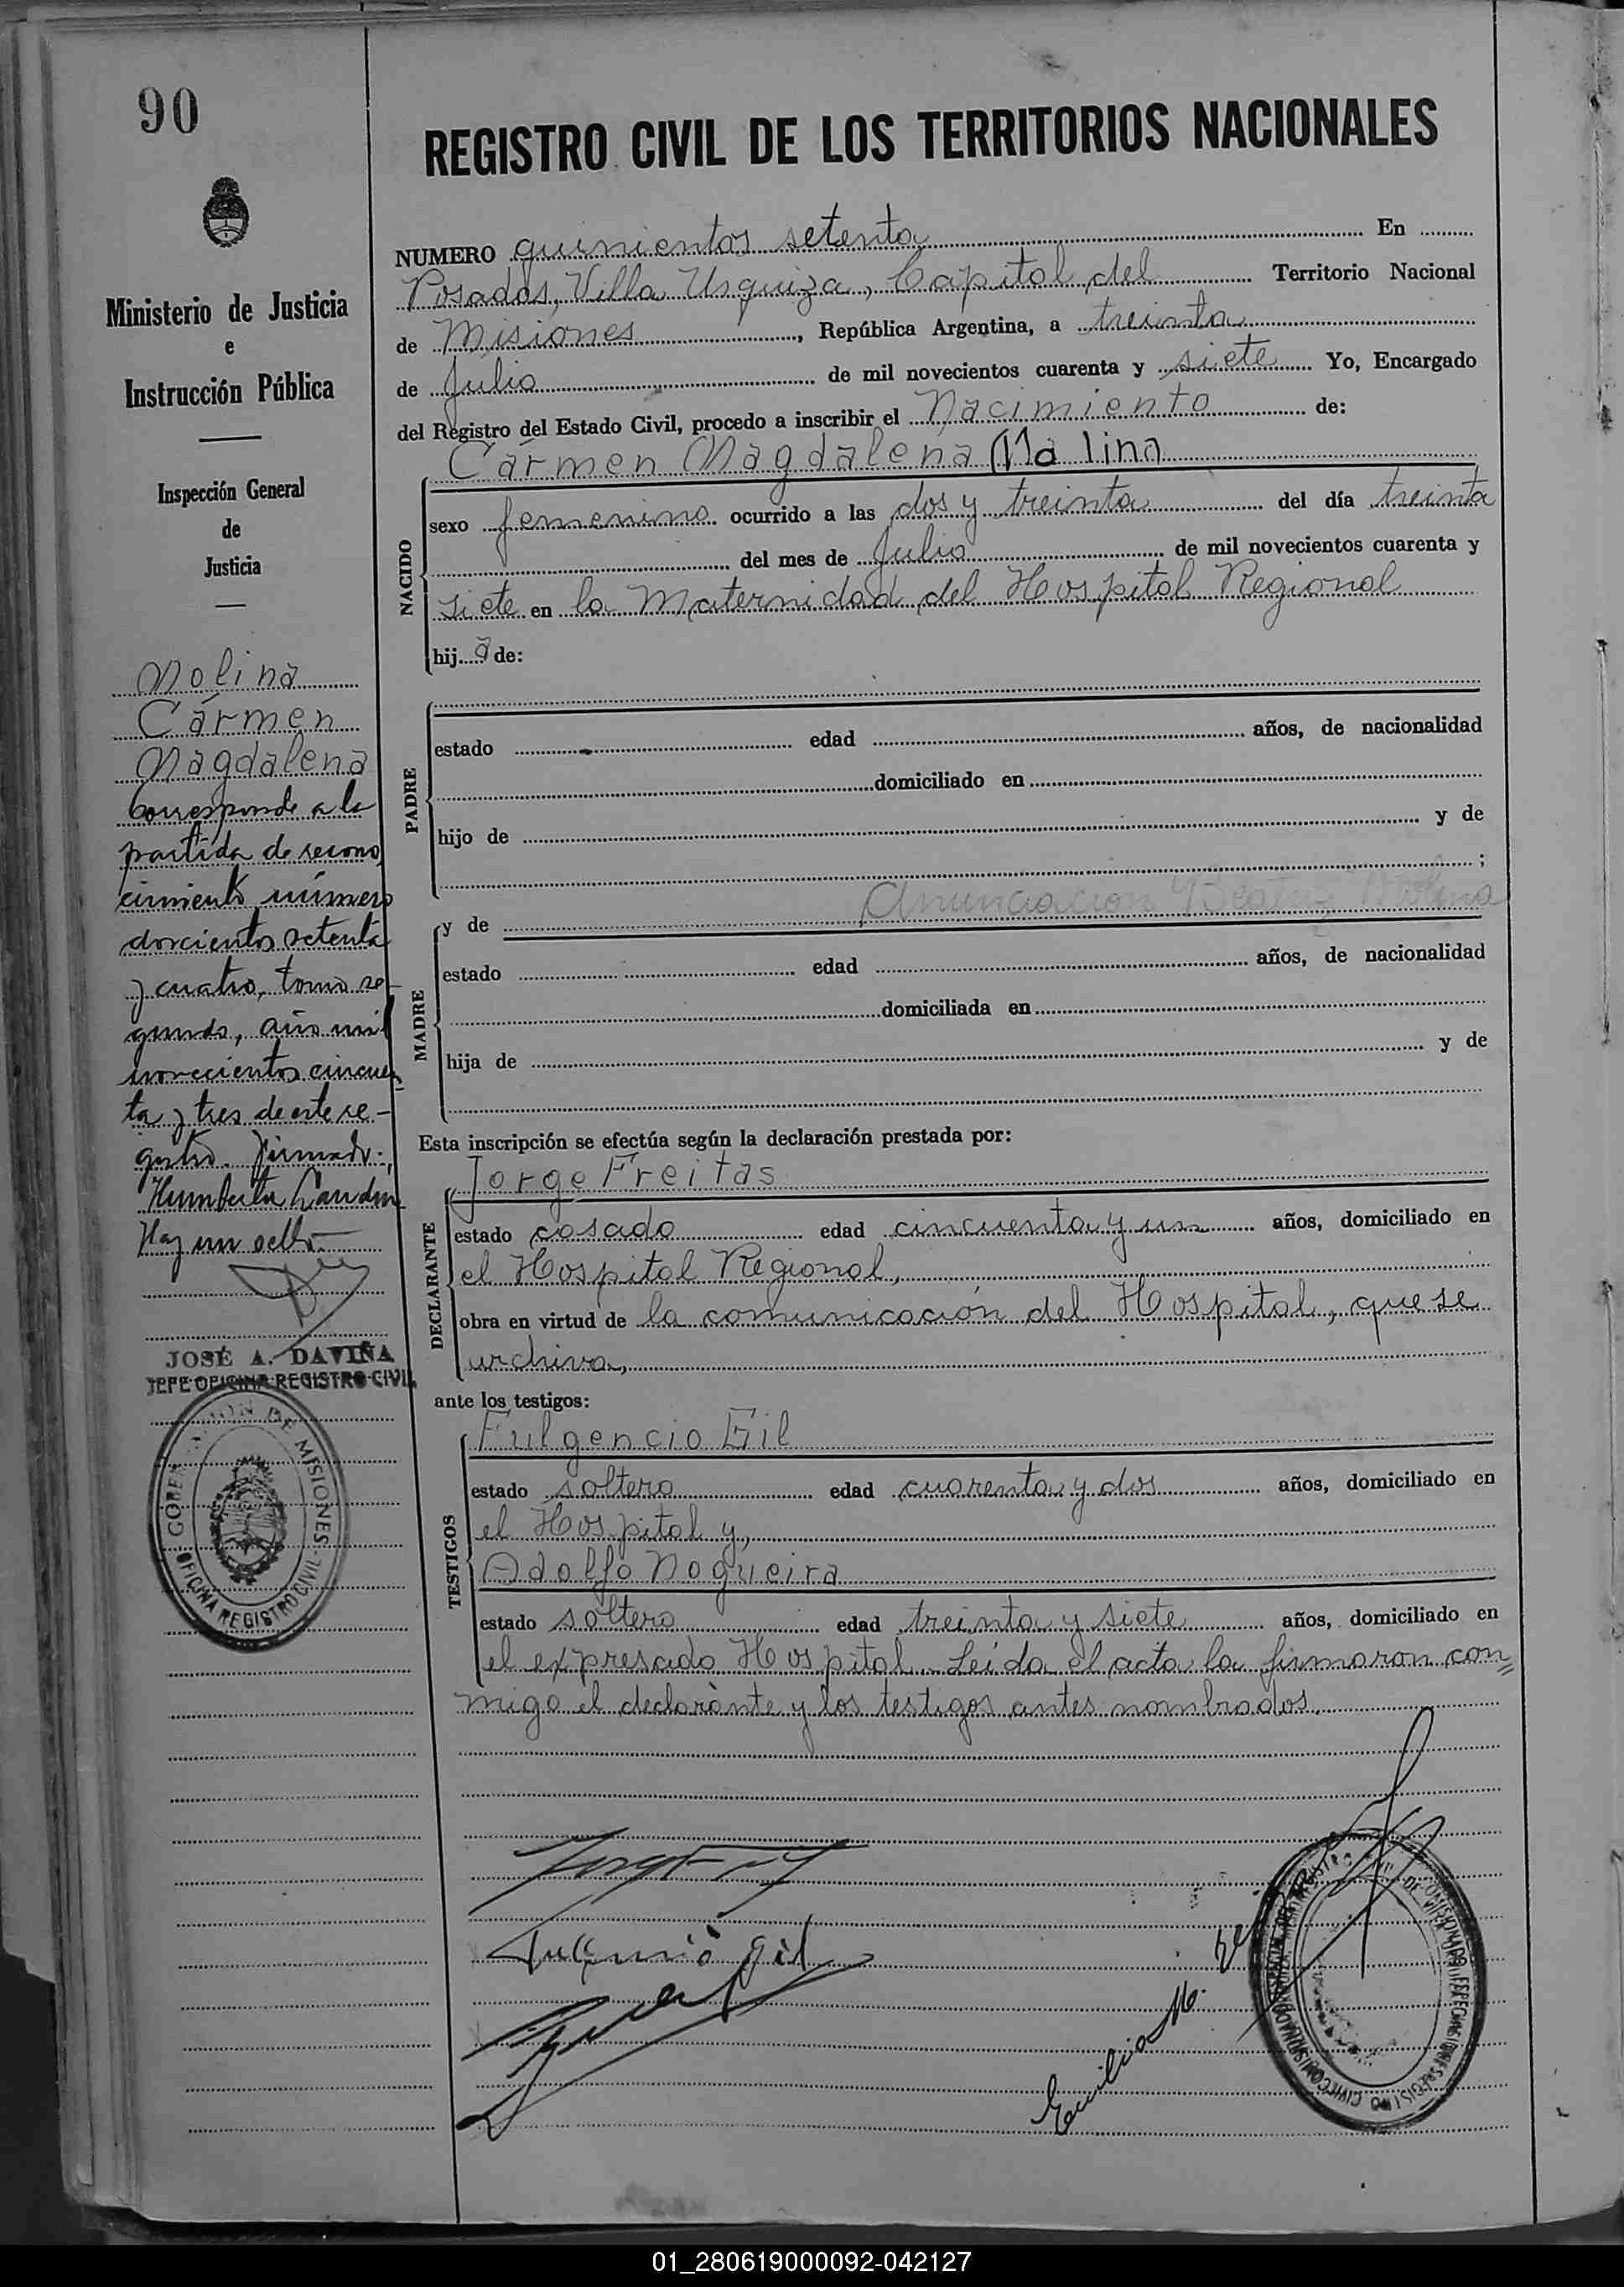 90
REGISTRO CIVIL DE LOS TERRITORIOS NACIONALES
Ministerio de Justicia
e
Instrucción Pública
Inspección General
de
Justicia
Molina
Cármen
Magdalena
Corresponde a la
partida de recono
cimiento número
doscientos setenta
y cuatro, tomo se-
gundo, año mil
novecientos cincuen
ta y tres de este re-
gistro. Firmado:
Humberto
Hay un sello.
JOSÉ A. DAVIÑA
JEFE OFICINA REGISTRO CIVIL
GOBERNACION DE MISIONES
OFICINA REGISTRO CIVIL
NUMERO quinientos setenta En
Posadas, Villa Urquiza, Capital del Territorio Nacional
de Misiones, República Argentina, a treinta
de Julio de mil novecientos cuarenta y siete Yo, Encargado
del Registro del Estado Civil, procedo a inscribir el Nacimiento de:
Cármen Magdalena Molina
NACIDO
sexo femenino ocurrido a las dos y treinta del día treinta
del mes de Julio de mil novecientos cuarenta y
siete en la Maternidad del Hospital Regional
hija de:
PADRE
estado edad años, de nacionalidad
domiciliado en
hijo de y de
;
MADRE
y de Anunciacion Beatriz Molina
estado edad años, de nacionalidad
domiciliada en
hija de y de
Esta inscripción se efectúa según la declaración prestada por:
DECLARANTE
Jorge Freitas
estado casado edad cincuenta y un años, domiciliado en
el Hospital Regional,
obra en virtud de la comunicación del Hospital, que se
archiva,
ante los testigos:
TESTIGOS
Fulgencio Gil
estado soltero edad cuarenta y dos años, domiciliado en
el Hospital y,
Adolfo Nogueira
estado soltero edad treinta y siete años, domiciliado en
el expresado Hospital. Leída el acta la firmaron con=
migo el declarante y los testigos antes nombrados.
Gil
Emilio M.
01_280619000092-042127